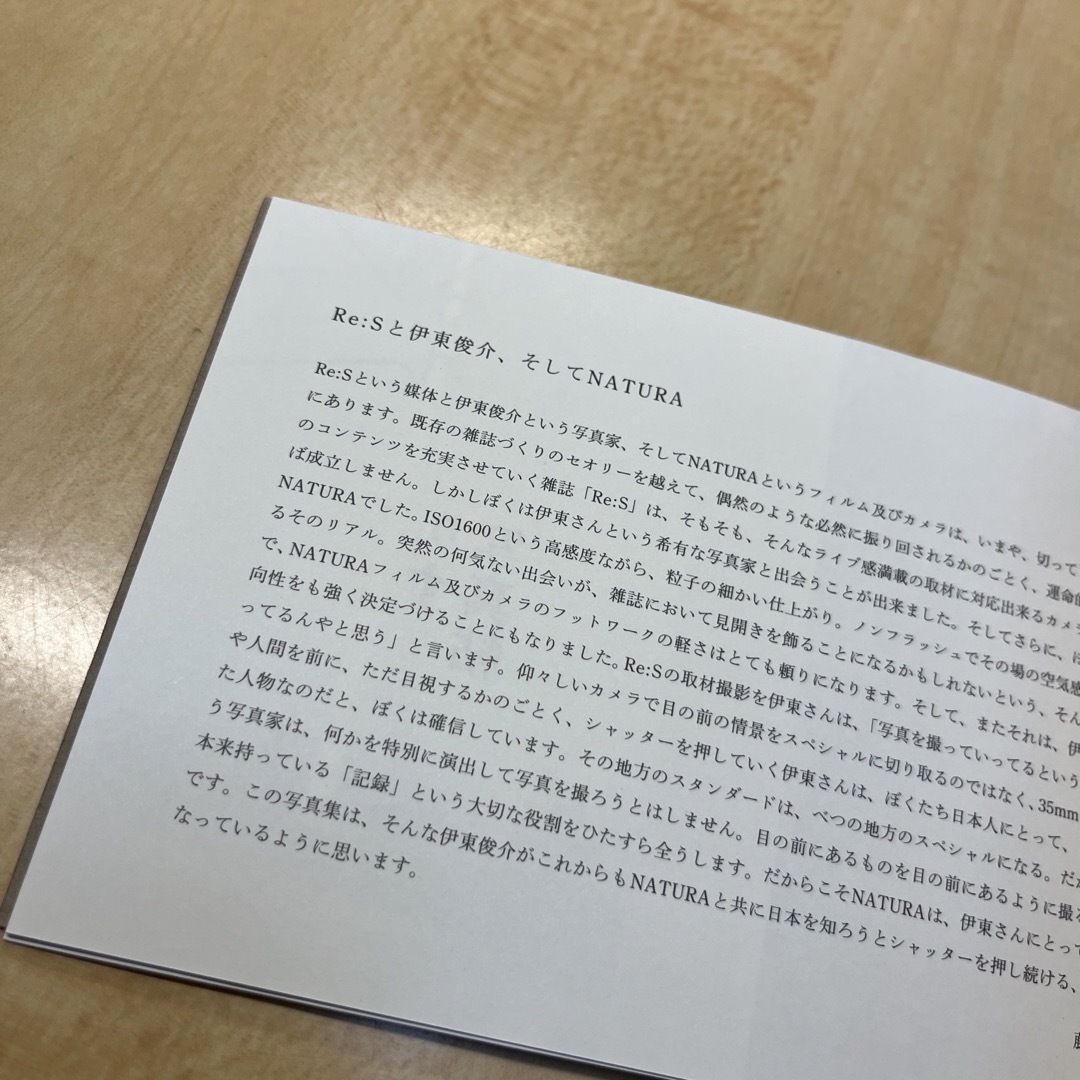 Re:Sと伊東俊介、そしてNATURA
Re:Sという媒体と伊東俊介という写真家、そしてNATURAというフィルム及びカメラは、いまや、切って
にあります。既存の雑誌づくりのセオリーを越えて、偶然のような必然に振り回されるかのごとく、運命的
のコンテンツを充実させていく雑誌「Re:S」は、そもそも、そんなライブ感満載の取材に対応出来るカメラ
ば成立しません。しかしぼくは伊東さんという希有な写真家と出会うことが出来ました。そしてさらに、
NATURAでした。ISO1600という高感度ながら、粒子の細かい仕上がり。ノンフラッシュでその場の空気感
るそのリアル。突然の何気ない出会いが、雑誌において見開きを飾ることになるかもしれないという、そん
で、NATURAフィルム及びカメラのフットワークの軽さはとても頼りになります。そして、またそれは、伊
向性をも強く決定づけることにもなりました。Re:Sの取材撮影を伊東さんは、「写真を撮っていってるという
ってるんやと思う」と言います。仰々しいカメラで目の前の情景をスペシャルに切り取るのではなく、35mm
や人間を前に、ただ目視するかのごとく、シャッターを押していく伊東さんは、ぼくたち日本人にとって、
た人物なのだと、ぼくは確信しています。その地方のスタンダードは、べつの地方のスペシャルになる。だか
う写真家は、何かを特別に演出して写真を撮ろうとはしません。目の前にあるものを目の前にあるように撮る
本来持っている「記録」という大切な役割をひたすら全うします。だからこそNATURAは、伊東さんにとって
です。この写真集は、そんな伊東俊介がこれからもNATURAと共に日本を知ろうとシャッターを押し続ける、
なっているように思います。
藤